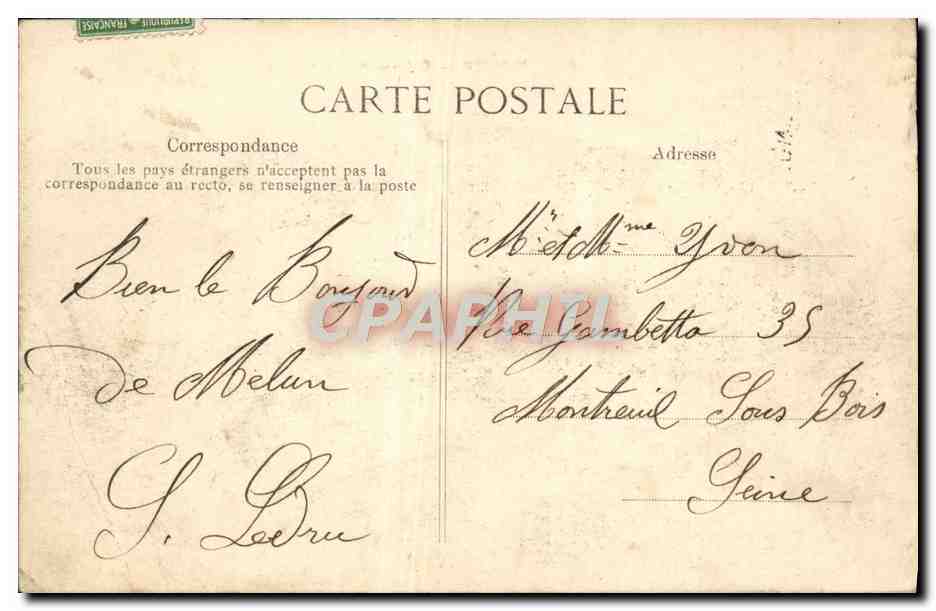 RÉPUBLIQUE FRANÇAISE
CARTE POSTALE
Correspondance
Tous les pays étrangers n'acceptent pas la
correspondance au recto, se renseigner à la poste
Bien le Bonjour
de Melun
S. Ledru
Adresse
Mr et Mme Yvon
Rue Gambetta 35
Montreuil Sous Bois
Seine
CPAPHIL